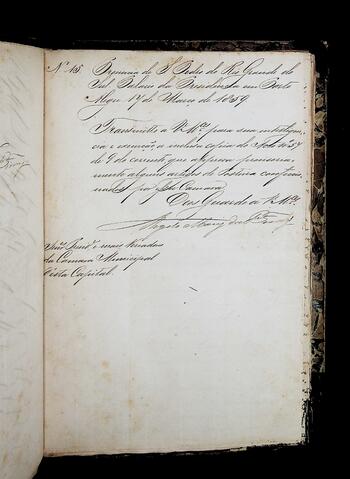 Nº 15. Provincia de S. Pedro do Rio Grande do
Sul Palacio da Presidencia em Porto
Alegre 17 de Março de 1859
Transmitto a V. Mces para sua intelligen-
cia e execução a inclusa copia do Acto nº 37
de 9 do corrente que approva provisoria-
mente alguns artigos de Postura confeccio-
nados por essa Camara
Deos Guarde a V. Mces
Snrs Presid.e e mais Vereadores
da Camara Municipal
desta Capital.